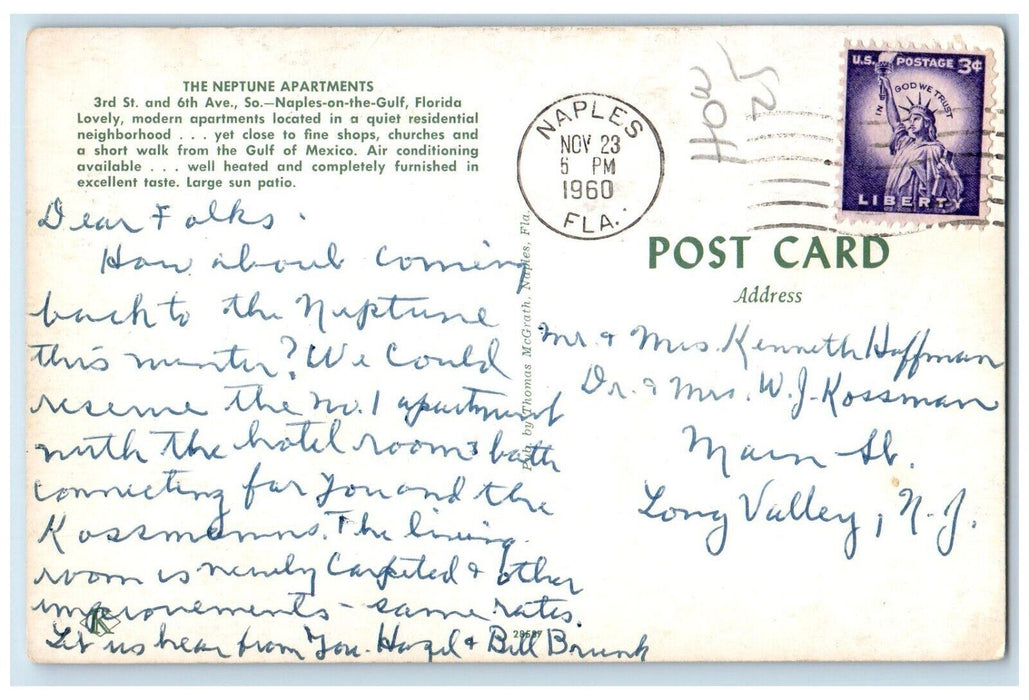 THE NEPTUNE APARTMENTS
3rd St. and 6th Ave., So.—Naples-on-the-Gulf, Florida
Lovely, modern apartments located in a quiet residential
neighborhood . . . yet close to fine shops, churches and
a short walk from the Gulf of Mexico. Air conditioning
available . . . well heated and completely furnished in
excellent taste. Large sun patio.
Dear Folks.
How about coming
back to the Neptune
this winter? We Could
reserve the No. 1 apartment
with the hotel room & bath
connecting for You and the
Kossmanns. The living
room is newly Carpeted & other
improvements - same rates.
Let us hear from You. Hazel & Bill
K
28587
Pub. by Thomas McGrath, Naples, Fla.
NAPLES
NOV 23
5 PM
1960
FLA.
HOW
25
U.S. POSTAGE 3¢
IN GOD WE TRUST
LIBERTY
POST CARD
Address
Mr. & Mrs. Kenneth Hoffman
Dr. & Mrs. W. J. Kossman
Main St.
Long Valley, N. J.